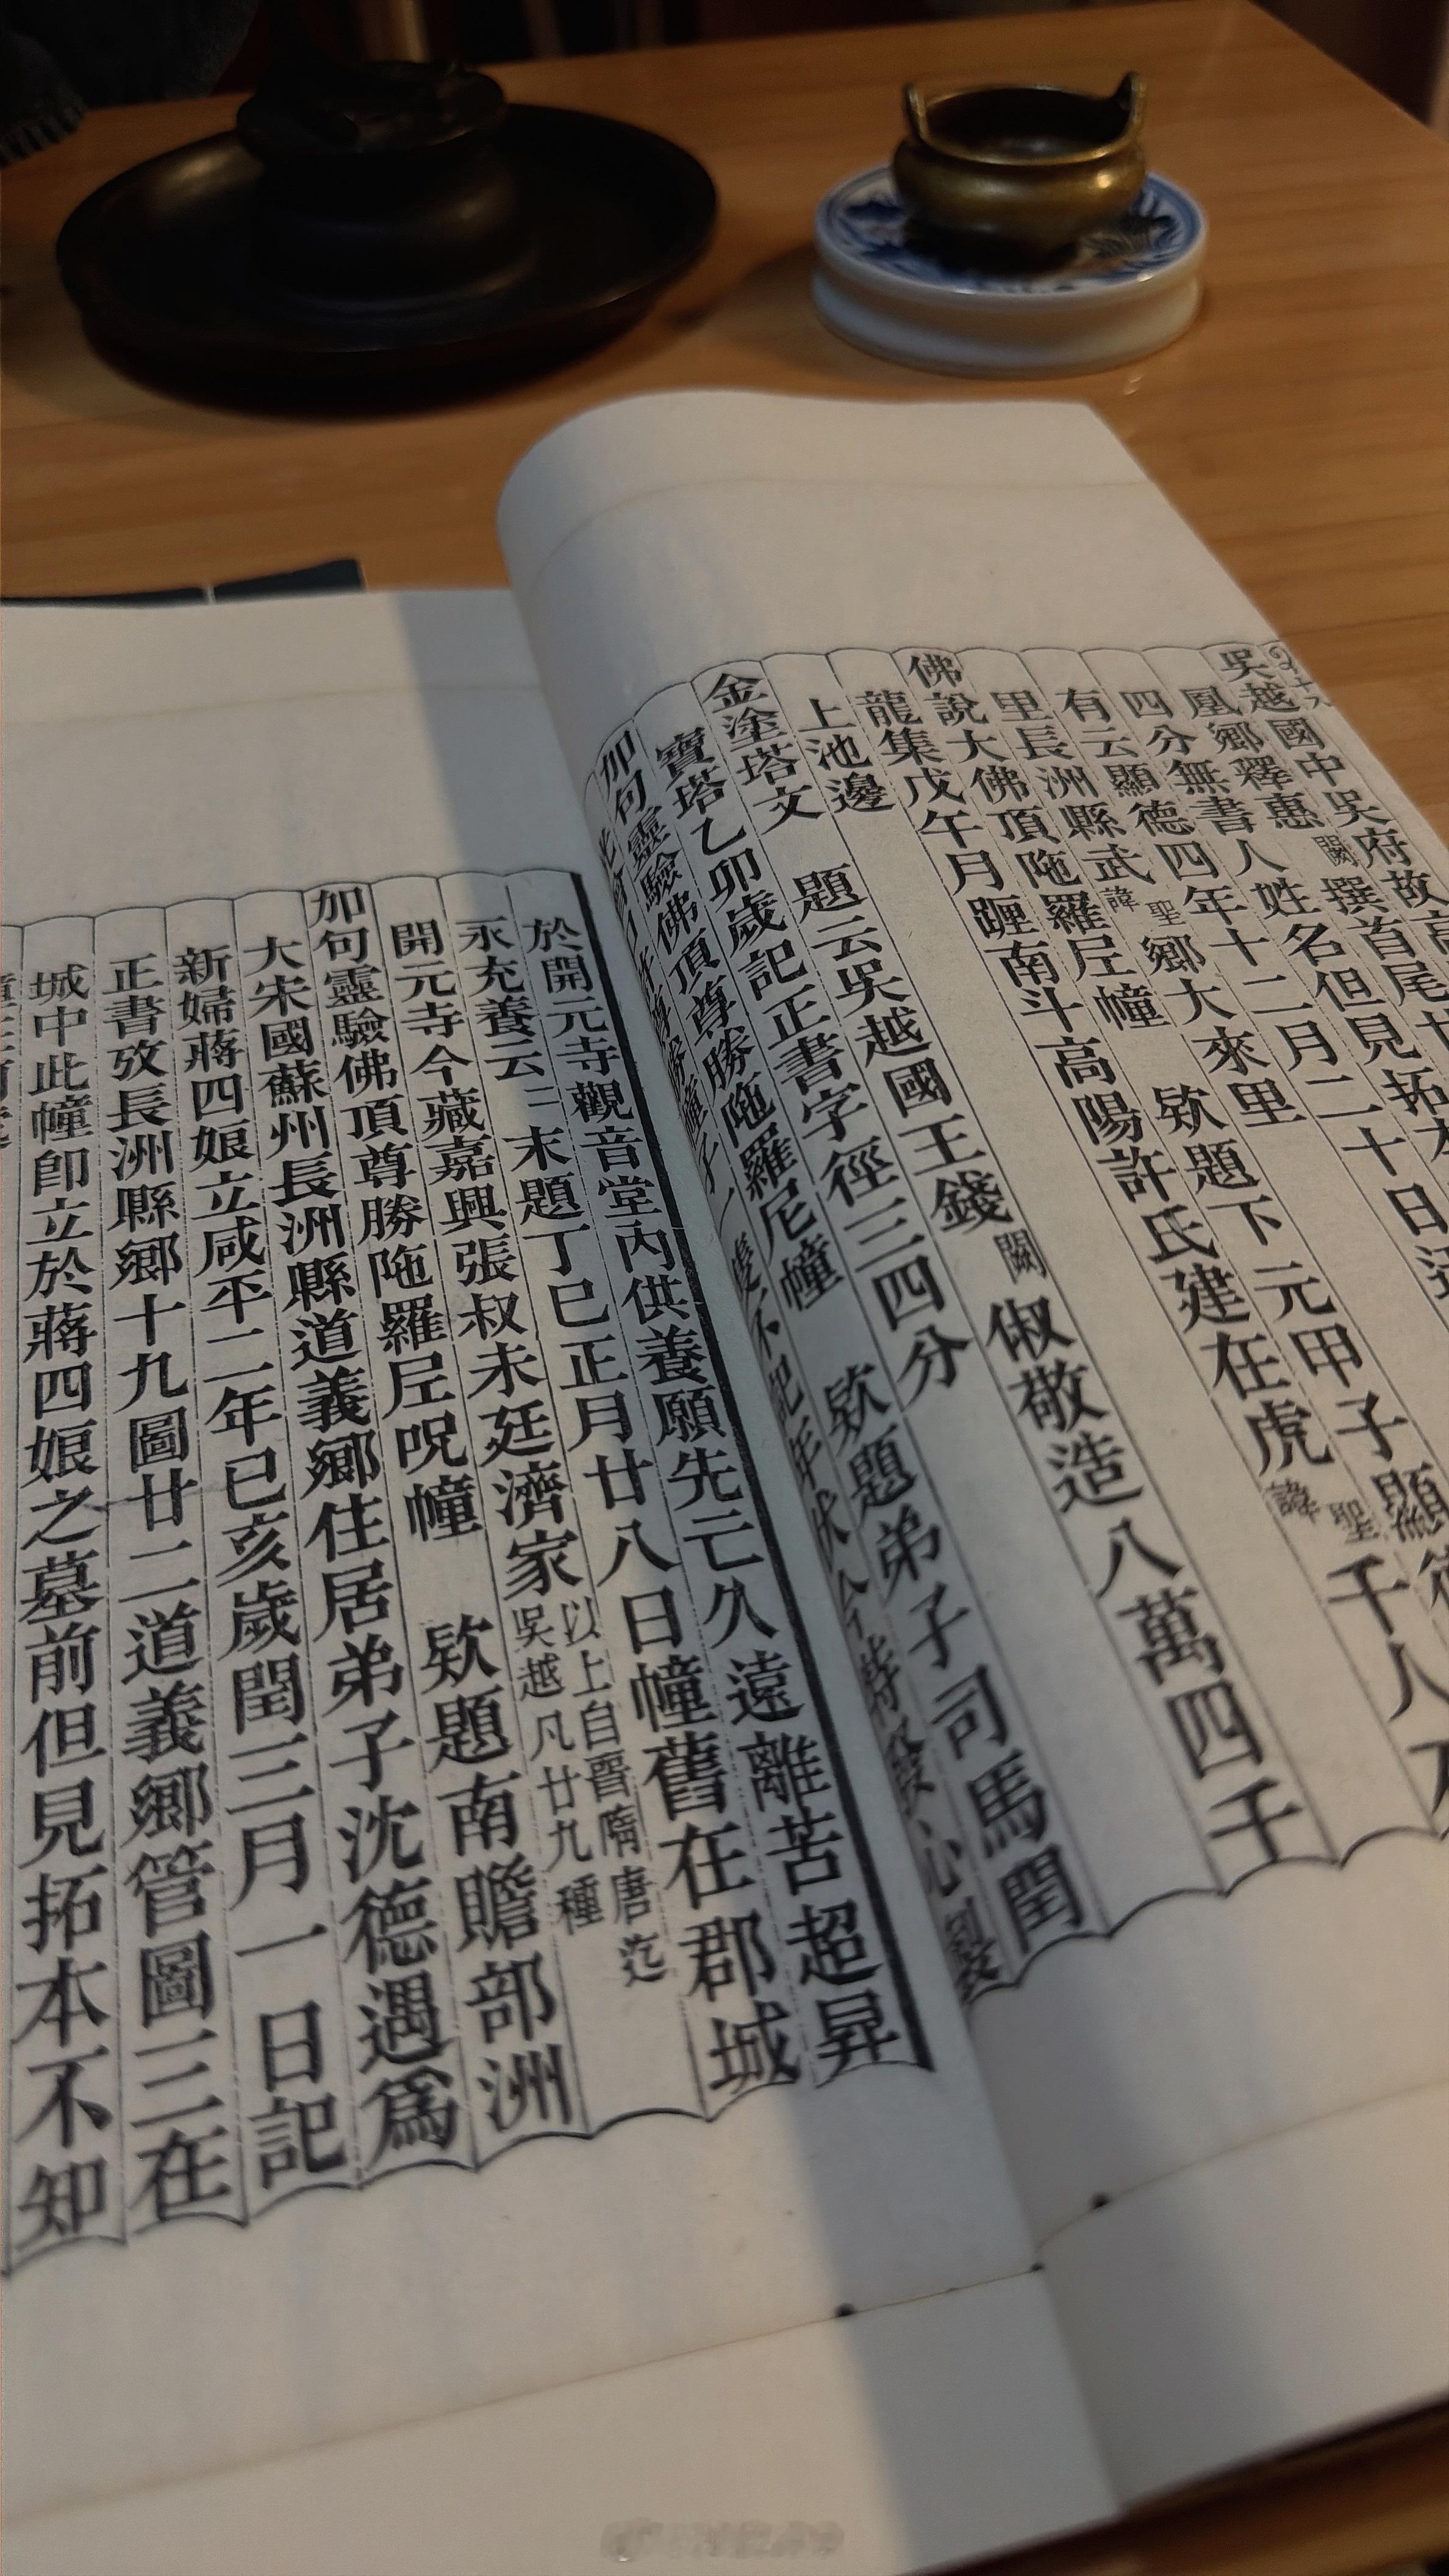 吳越國中吳府故高
凰鄉釋惠闕撰首尾
四分無書人姓名但見拓本
有云顯德四年十二月二十日
里長洲縣武聖諱鄉大來里
佛說大佛頂陁羅尼幢　欵題下元甲子顯
龍集戊午月躔南斗高陽許氏建在虎聖諱千人
上池邊
金塗塔文　題云吳越國王錢闕俶敬造八萬四千
寶塔乙卯歲記正書字徑三四分
加句靈驗佛頂尊勝陁羅尼幢　欵題弟子司馬閏
於開元寺觀音堂內供養願先亡久遠離苦超昇
永充養云云末題丁巳正月廿八日幢舊在郡城
開元寺今藏嘉興張叔未廷濟家以上自晉隋唐迄吳越凡廿九種
加句靈驗佛頂尊勝陁羅尼呪幢　欵題南贍部洲
大宋國蘇州長洲縣道義鄉住居弟子沈德遇爲
新婦蔣四娘立咸平二年己亥歲閏三月一日記
正書攷長洲縣鄉十九圖廿二道義鄉管圖三在
城中此幢卽立於蔣四娘之墓前但見拓本不知